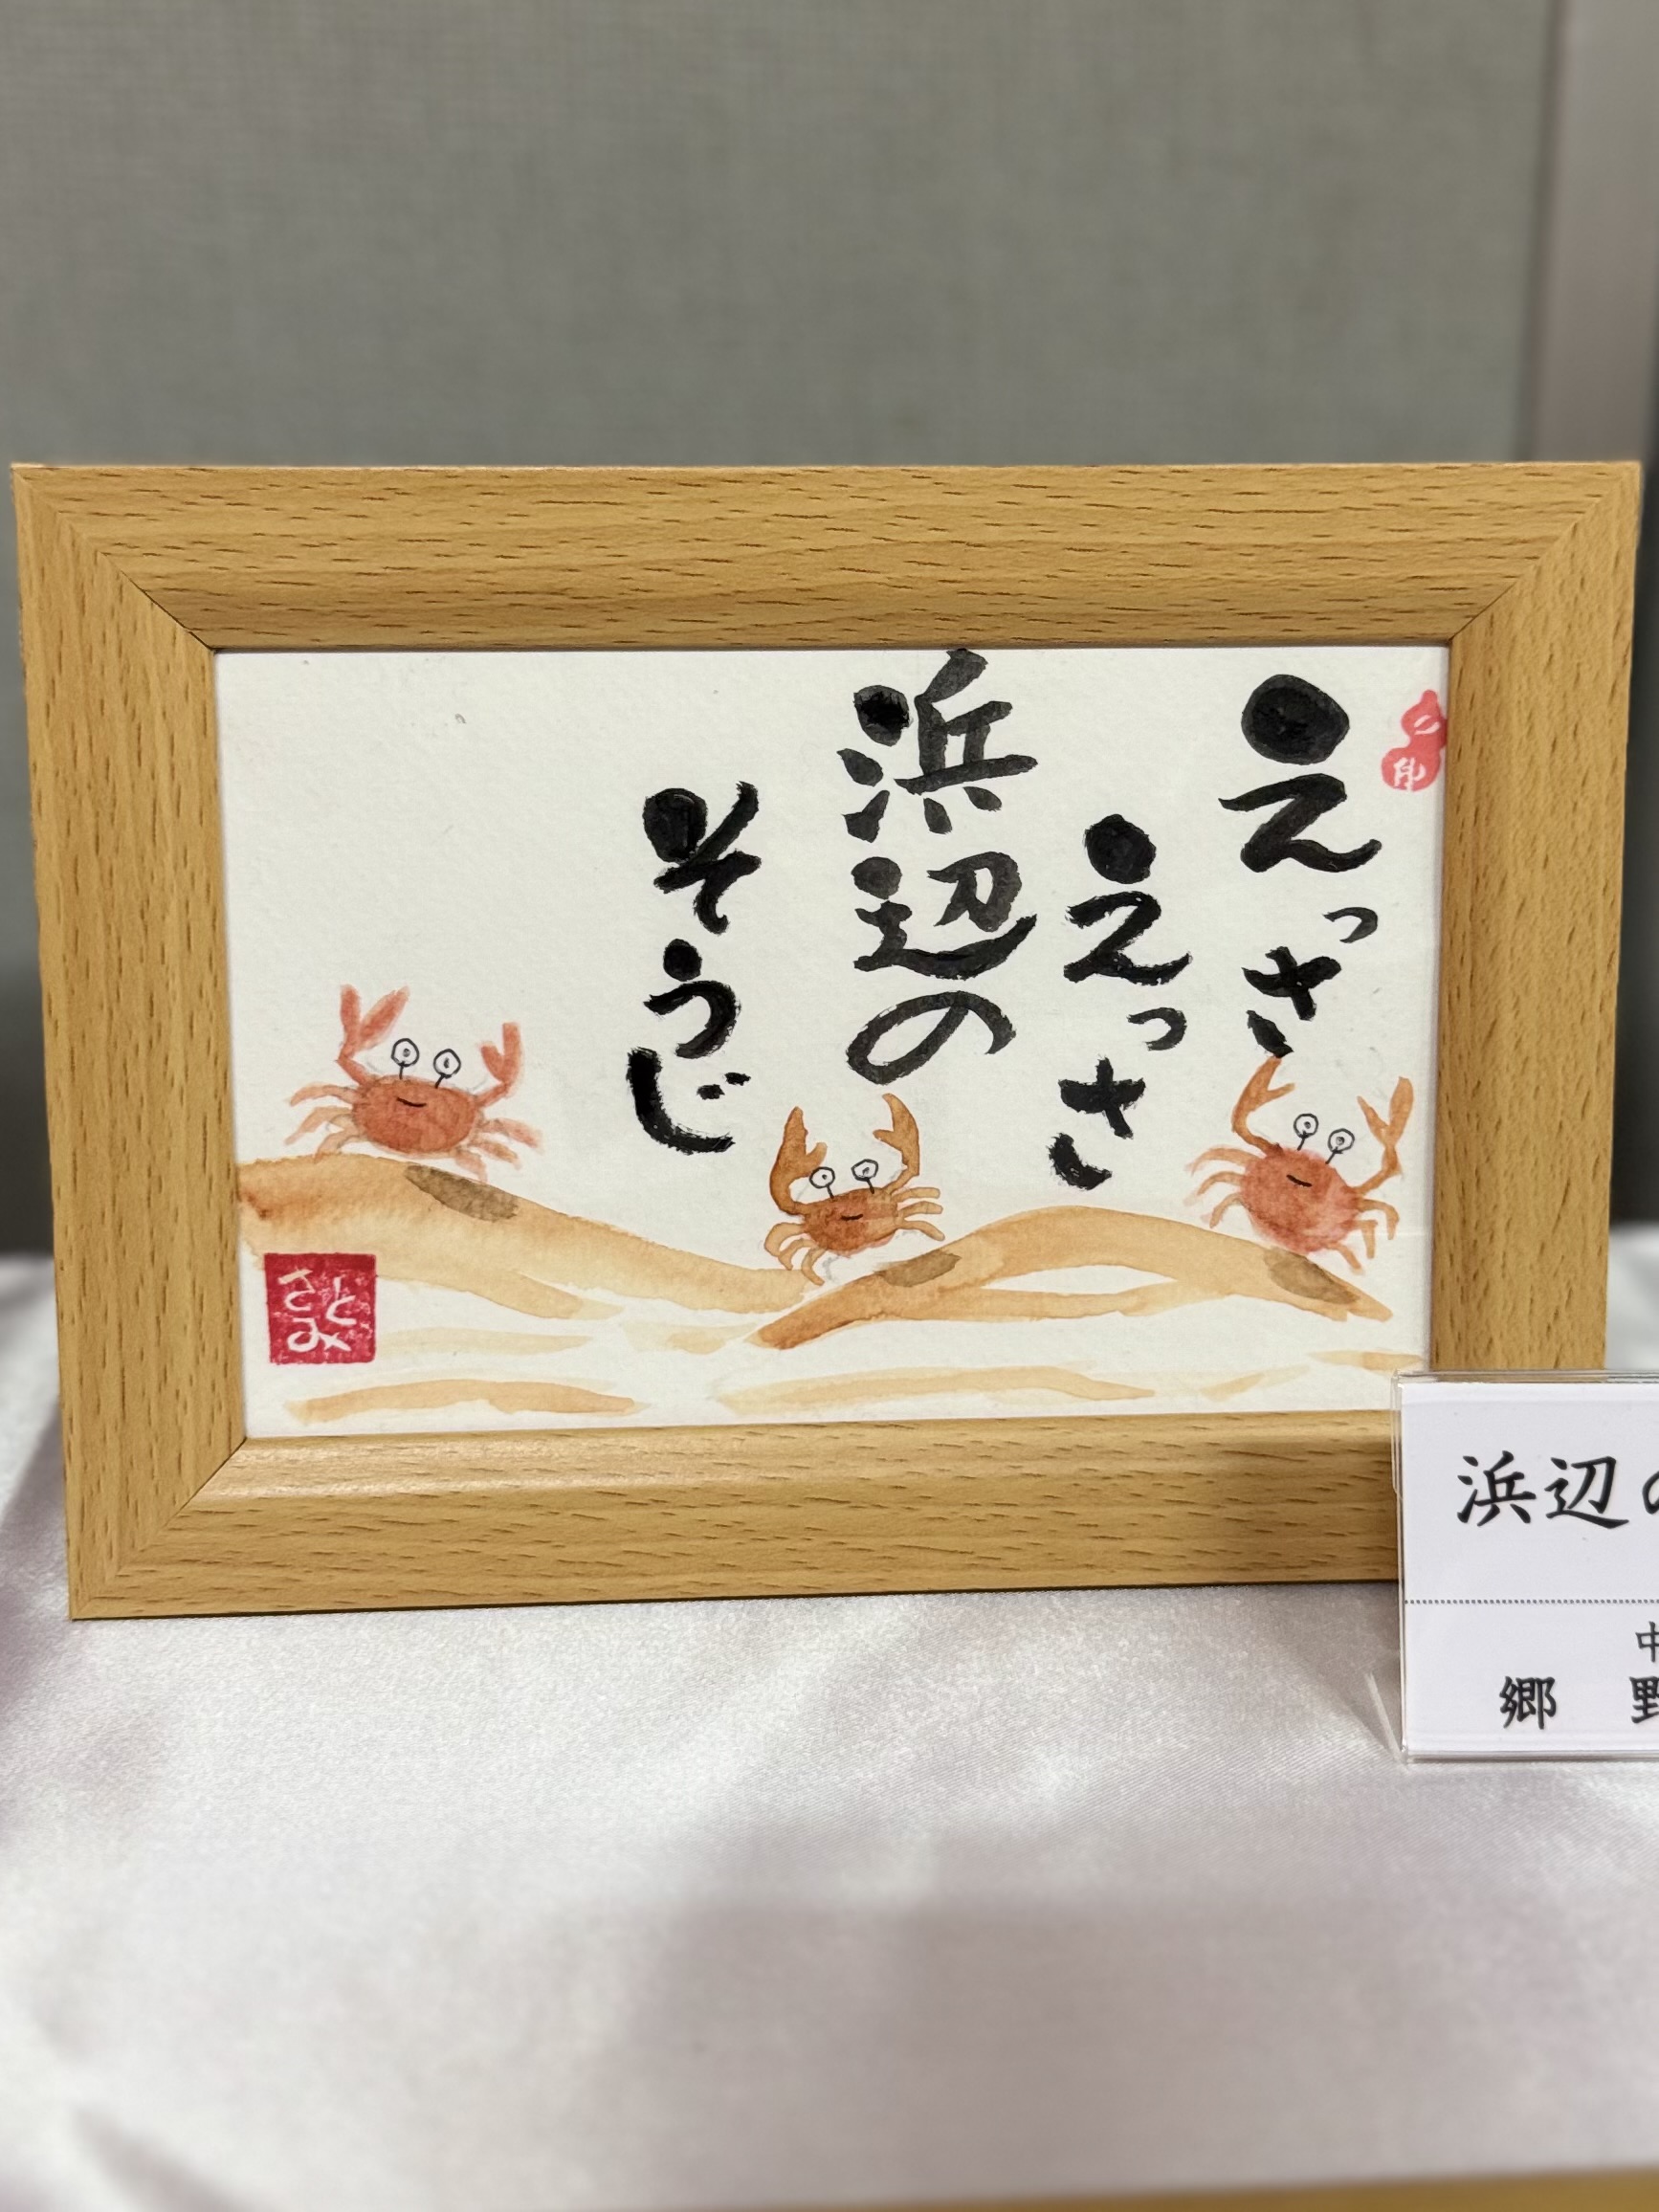 えっさ
えっさ
浜辺の
そうじ
さとみ
浜辺の
中
郷 野